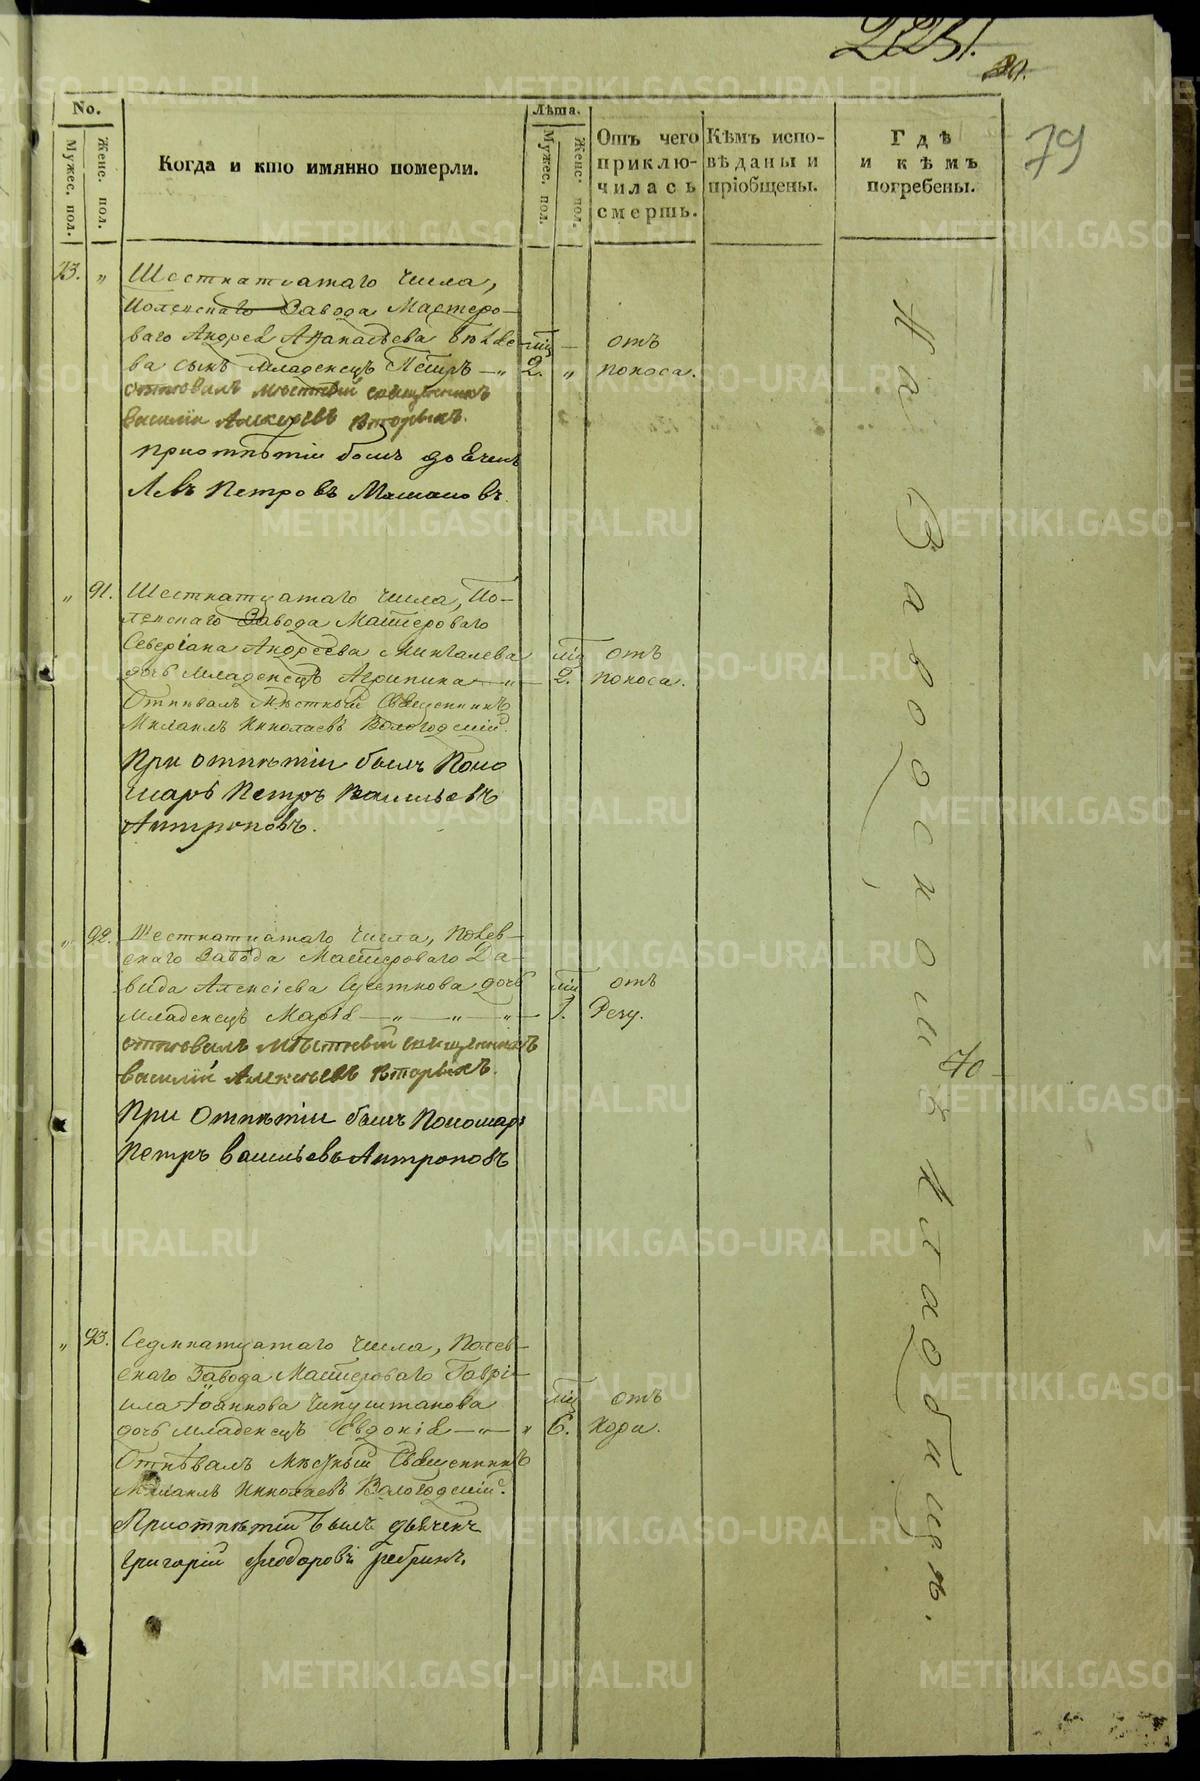 2231.
80.
79
No.
Мужес. пол.
Женс. пол.
Когда и кто имянно померли.
Лѣта.
Мужес. пол.
Женс. пол.
Отъ чего приключилась смерть.
Кѣмъ исповѣданы и пріобщены.
Гдѣ и кѣмъ погребены.
73. „
Шестнатцатаго числа,
Полевскаго Завода Мастеро-
ваго Андрея Афанасьева
ва сынъ младенецъ Петръ — „ 2. „
мц
отъ
поноса.
отпѣвалъ мѣстный священникъ
василій Алексѣевъ Вторыхъ.
При отпѣтіи былъ дьячекъ
Левъ Петровъ Мамановъ
„ 91.
Шестнатцатаго числа, По-
левскаго Завода Мастероваго
Северіана Андреева Минталева
дочь младенецъ Агрипина — „ — 2.
мц
отъ
поноса.
Отпѣвалъ Мѣстный Священникъ
Михаилъ Николаевъ Вологодскій.
При отпѣтіи былъ Поно
марь Петръ Васильевъ
Антроповъ.
„ 92.
Шестнатцатаго числа, Полев-
скаго Завода Мастероваго Да-
вида Алексіева дочь
младенецъ Марія — „ — „ — „ — 1.
мц
отъ
Резу.
отпѣвалъ мѣстный священникъ
василій Алексѣевъ Вторыхъ.
При Отпѣтіи былъ Пономарь
Петръ Васильевъ Антроповъ
„ 93.
Седмнатцатаго числа, Полев-
скаго Завода Мастероваго Гаврі-
ила Іоаннова Чипуштанова
дочь младенецъ Евдокія — „ — „ 6.
мц
отъ
Кори.
Отпѣвалъ Мѣстный Священникъ
Михаилъ Николаевъ Вологодскій.
При отпѣтіи былъ дьячекъ
Григорій Феодоровъ Ребринъ.
На Заводскомъ кладбищѣ.
70
METRIKI.GASO-URAL.RU